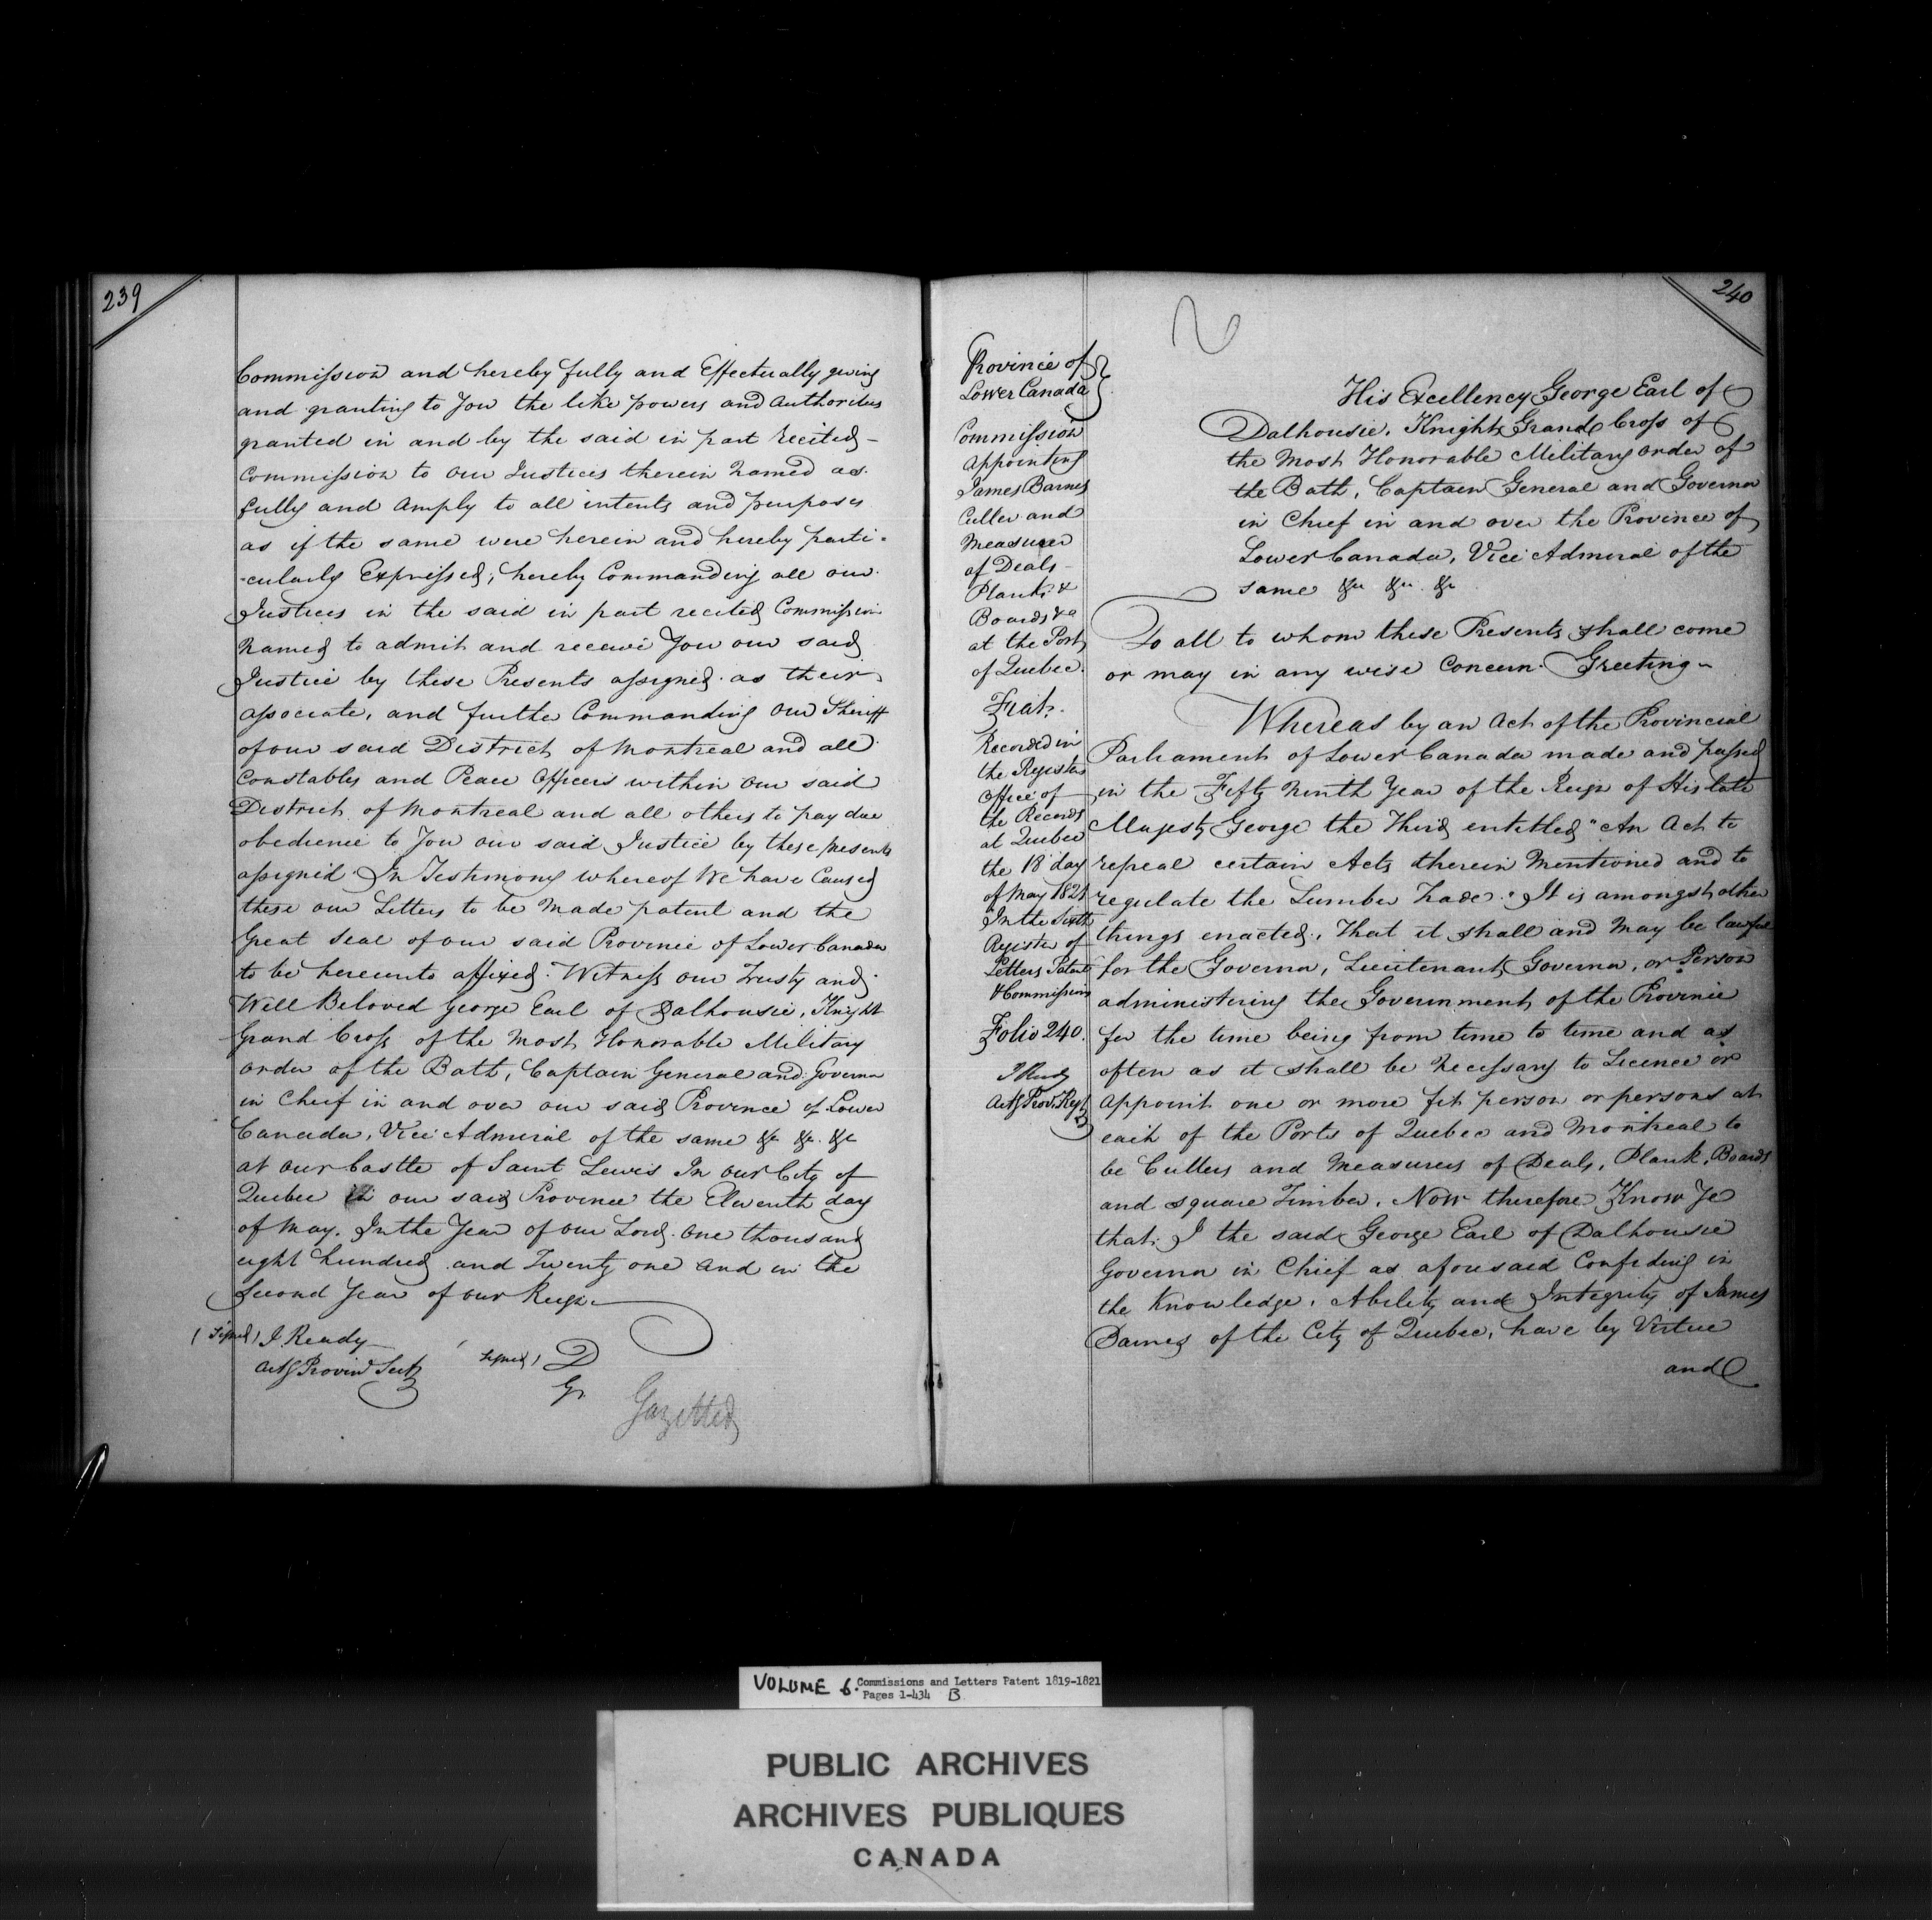 239
Commission and hereby fully and Effectually giving
and granting to You the like powers and Authorities
granted in and by the said in part recited
Commission to our Justices therein Named as
fully and Amply to all intents and purposes
as if the same were herein and hereby parti-
-cularly Expressed; hereby Commanding all our
Justices in the said in part recited Commission
Named to admit and receive You our said
Justice by these Presents assigned as their
associate, and further Commanding Our Sheriff
of our said District of Montreal and all
Constables and Peace Officers within our said
District of Montreal and all others to pay due
obedience to You our said Justice by these presents
assigned. In Testimony whereof We have Caused
these our Letters to be Made patent and the
Great Seal of our said Province of Lower Canada
to be hereunto affixed. Witness our Trusty and
Well Beloved George Earl of Dalhousie, Knight
Grand Cross of the Most Honorable Military
order of the Bath, Captain General and Governor
in Chief in and over our said Province of Lower
Canada, Vice Admiral of the same &c &c &c
at our Castle of Saint Lewis In our City of
Quebec in our said Province the Eleventh day
of May. In the Year of our Lord one thousand
eight hundred and Twenty one and in the
Second Year of our Reign.
(Signed) J. Ready
Actg Provin'l Secty
Signed) D
Gr
Gazetted
240
Province of
Lower Canada
Commission
Appointing
James Barnes
Culler and
Measurer
of Deals
Planks &
Boards &a
at the Port
of Quebec.
Fiat.
Recorded in
the Registers
Office of
the Records
at Quebec
the 18 day
of May 1821
In the Sixth
Register of
Letters Patent
& Commissions
Folio 240.
J Ready
Actg Prov. Regr
His Excellency George Earl of
Dalhousie, Knight Grand Cross of
the Most Honorable Military order of
the Bath, Captain General and Governor
in Chief in and over the Province of
Lower Canada, Vice Admiral of the
same &c &c &c
To all to whom these Presents shall come
or may in any wise Concern Greeting
Whereas by an Act of the Provincial
Parliament of Lower Canada made and passed
in the Fifty Ninth Year of the Reign of His late
Majesty George the Third entitled "An Act to
repeal certain Acts therein Mentioned and to
regulate the Lumber Trade": It is amongst other
things enacted, That it shall and May be lawful
for the Governor, Lieutenant Governor, or Person
administering the Government of the Province
for the time being from time to time and as
often as it shall be Necessary to Licence or
Appoint one or more fit person or persons at
each of the Ports of Quebec and Montreal to
be Cullers and Measurers of Deals, Plank, Boards
and square Timber. Now therefore Know Ye
that I the said George Earl of Dalhousie
Governor in Chief as aforesaid Confiding in
the Knowledge, Ability and Integrity of James
Barnes of the City of Quebec, have by Virtue
and
VOLUME 6. Commissions and Letters Patent 1819-1821
Pages 1-434 B
PUBLIC ARCHIVES
ARCHIVES PUBLIQUES
CANADA